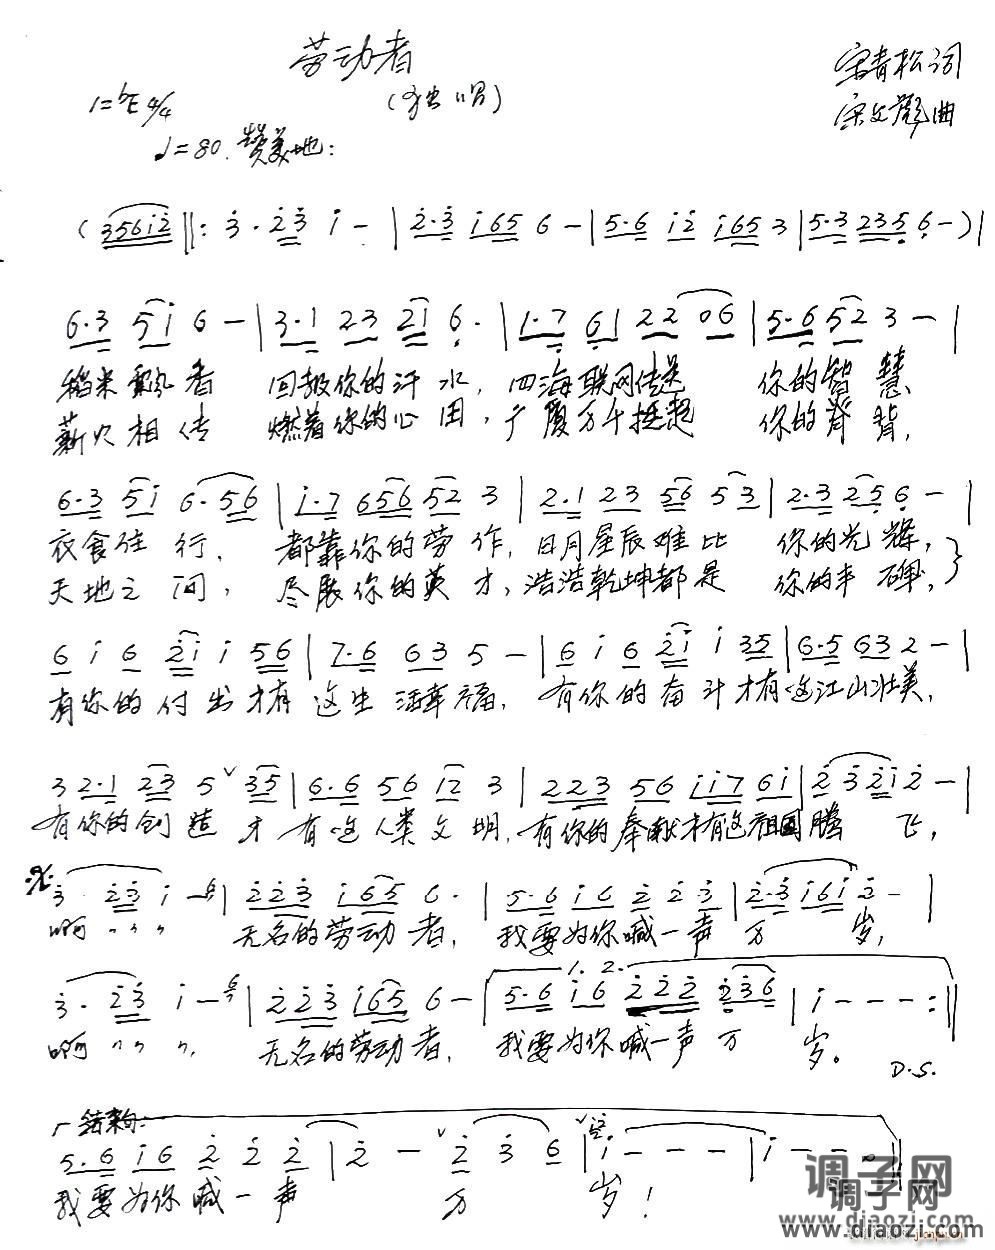 劳动者
(独唱)
宋青松词
宋文彪曲
1=♭E 4/4
♩=80 赞美地:
(356i2‖: 3·23 i-|2·3 i65 6-|5·6 i2 i653|5·3 235 6-)|
6·3 5i 6-|3·1 23 21 6·|1·7 61 22 06|5·6 52 3-|
稻米飘香 回报你的汗水, 四海联网传递 你的智慧、
薪火相传 燃着你的心田, 广厦万千挺起 你的脊背,
6·3 5i 6·56|i·7 656 52 3|2·1 23 56 53|2·3 25 6-|
衣食住行, 都靠你的劳作, 日月星辰难比 你的光辉,
天地之间, 尽展你的英才, 浩浩乾坤都是 你的丰碑,
6 i 6 2i i 56|7·6 63 5-|6 i 6 2i i 35|6·5 63 2-|
有你的付出才有这生活幸福, 有你的奋斗才有这江山壮美,
3 2·1 23 5 ˅ 35|6·6 56 i2 3|223 56 ii7 6i|2 3 2i 2-|
有你的创造 才有这人类文明, 有你的奉献才有这祖国腾飞,
3· 23 i-|223 i65 6·|5·6 i6 2 2 3|2·3 i6i 3-|
啊 无名的劳动者, 我要为你喊一声万 岁,
1. 2.
3· 23 i-|223 i65 6-|5·6 i6 222 236|i---:‖
啊 无名的劳动者, 我要为你喊一声万 岁。
D.S.
结束句:
5·6 i6 2 2 2|2- ˅ 2 3 6|i---|i---‖
我要为你喊一声 万 岁!
调子网
www.diaozi.com